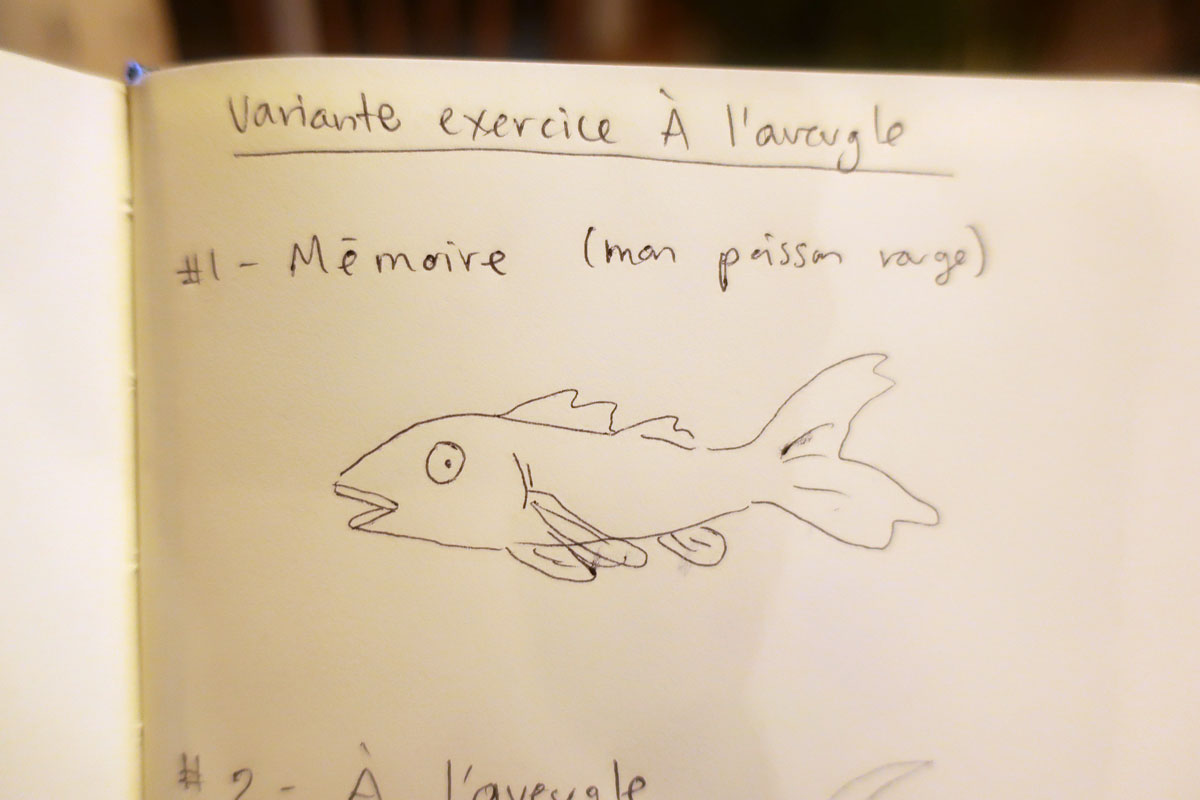 Variante exercice À l'aveugle
#1 - Mémoire (mon poisson rouge)
#2 - À l'aveugle